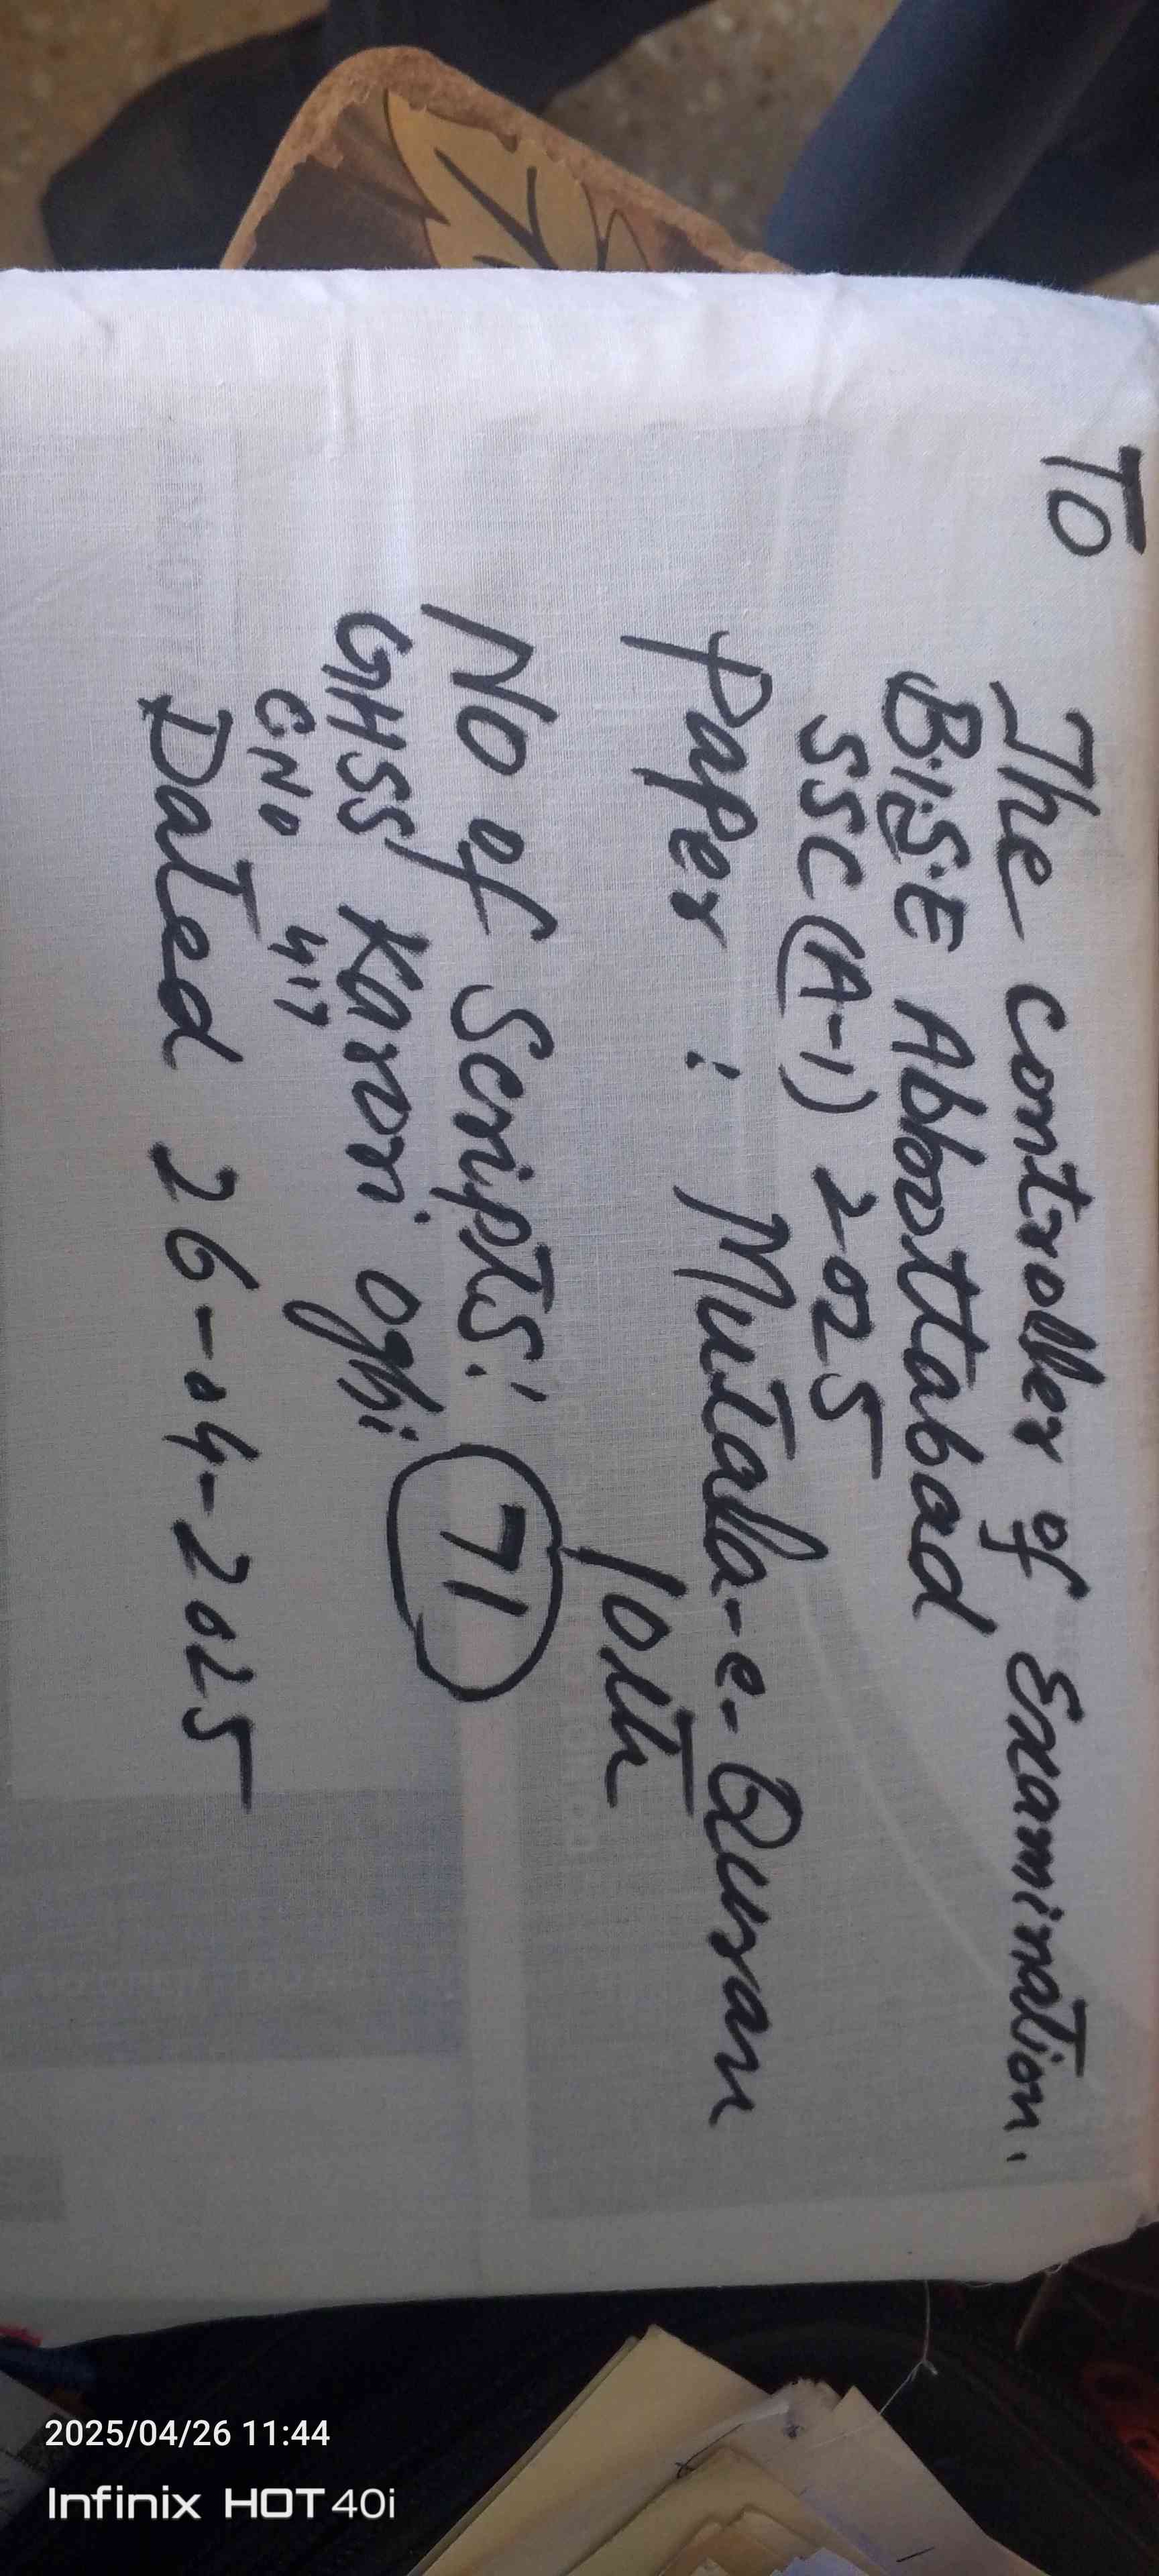 TO
The Controller of Examination.
B.I.S.E Abbottabad
SSC (A-1) 2025
Paper : Mutala-e-Quran
10th
No of Scripts: 71
GHSS Karori oghi
C.No 417
Dated 26-04-2025
2025/04/26 11:44
Infinix HOT 40i